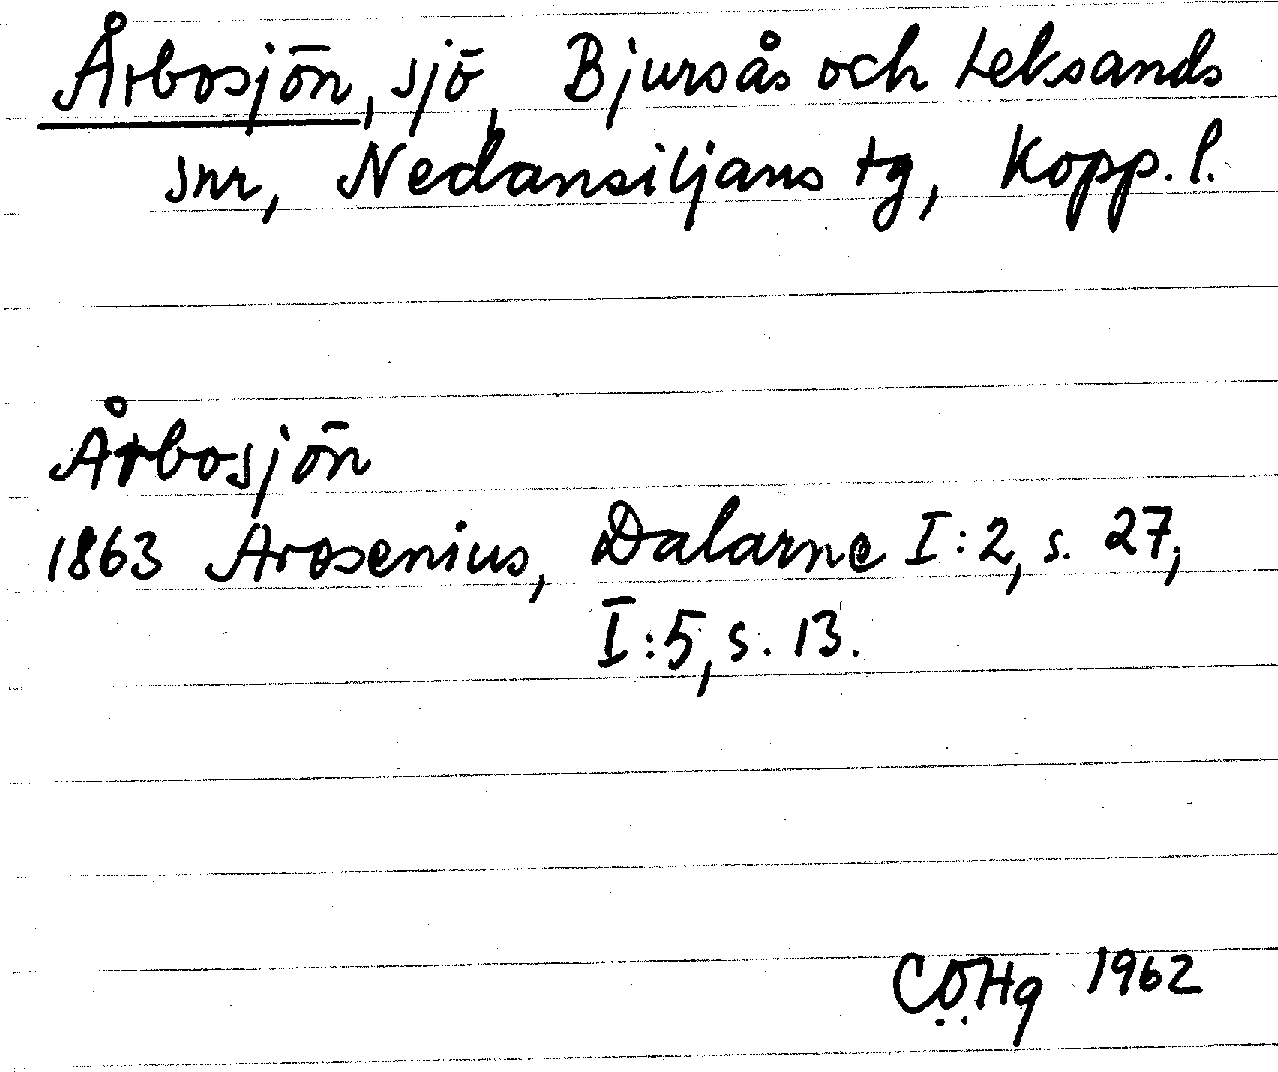 Årbosjön, sjö, Bjursås och Leksands
snr, Nedansiljans tg, Kopp. l.
Årbosjön
1863 Arosenius, Dalarne I:2, s. 27,
I:5, s. 13.
CÖHg 1962